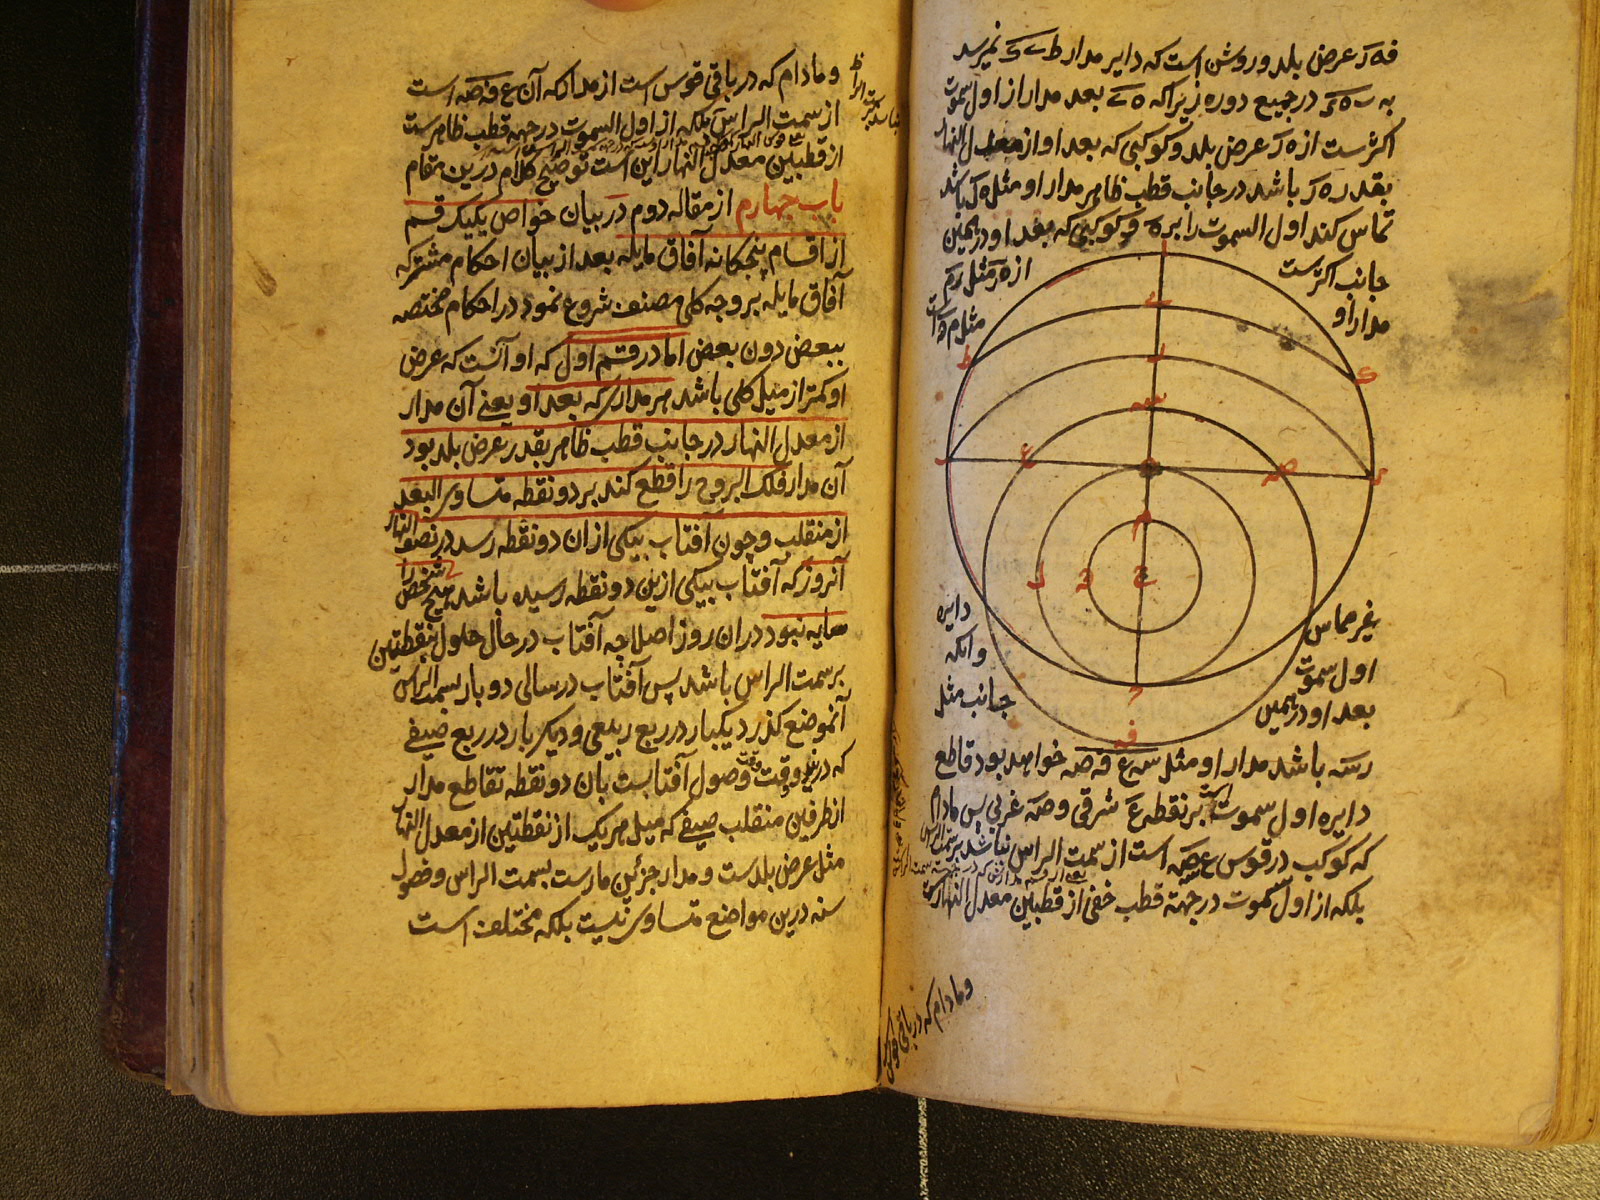 فه ر عرض بلد و روشن است که دایر مدار ط ے ک نمیرسد
به ب ه ک در جمیع دوره زیراکه ه ے بعد مدار از اول سموت
اکثرست از ه ر عرض بلد و کوکبی که بعد او از معدل النهار
بقدر ه ر باشد در جانب قطب ظاهر مدار او مثل
تماس کند اول السموت را بر ه و کوکبی که بعد او در همین
جانب اکثرست از ه ر مثل
مدار او مثل
غیر مماس دایره
اول سموت وانکه
بعد او در همین جانب مثل
رسه باشد مدار او مثل سه ع فصه خواهد بود قاطع
دایره اول سموت است بر نقطه ع شرقی وصه غربی پس مادام
که کوکب در قوس ع صه است از سمت الراس نباشد بر سمت الراس
بلکه از اول سموت در جهة قطب خفی از قطبین معدل النهارست
وما دام که در باقی قوس
وما دام که در باقی قوس است از مدار که آن ع فصه است
از سمت الراس بلکه از اول السموت در جهة قطب ظاهرست
از قطبین معدل النهار این است توضیح کلام درین مقام
باب چهارم از مقاله دوم در بیان خواص یکیک قسم
از اقسام پنجکانه آفاق مایله بعد از بیان احکام مشترکه
آفاق مایله بر وجه کلی مصنف شروع نمود در احکام مختصه
ببعض دون بعض اما در قسم اول که او آنست که عرض
او کمتر از میل کلی باشد هر مداری که بعد او یعنے آن مدار
از معدل النهار در جانب قطب ظاهر بقدر عرض بلد بود
آن مدار فلک البروج را قطع کند بر دو نقطه متساوی البعد
از منقلب و چون آفتاب بیکی ازان دو نقطه رسد در نصف النهار
آنروز که آفتاب بیکی ازین دو نقطه رسیده باشد هیچ شخص را
سایه نبود دران روز اصلا چه آفتاب در حال حلول بنقطتین
بر سمت الراس باشد پس آفتاب در سالی دو بار بسمت الراس
آنموضع گذرد یکبار در ربع ربیعی و دیگر بار در ربع صیفے
که درین دو وقت وقت وصول آفتابست بان دو نقطه تقاطع مدار
از طرفین منقلب صیفے که میل هر یک از نقطتین از معدل النهار
مثل عرض بلدست و مدار جزئین مارست بسمت الراس و فصول
سنه درین مواضع متساوی نیست بلکه مختلف است